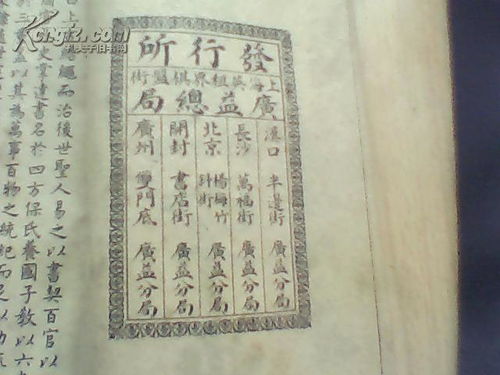 發行所
上海英租界棋盤街
廣益總局
漢口 半邊街 廣益分局
長沙 萬福街 廣益分局
北京 楊梅竹斜街 廣益分局
開封 書店街 廣益分局
廣州 雙門底 廣益分局
繩而治後世聖人易之以書契百官以
史掌達書名於四方保氏養國子教以六
蓋以其為萬事百物之統紀而足以助
孔夫子旧书网